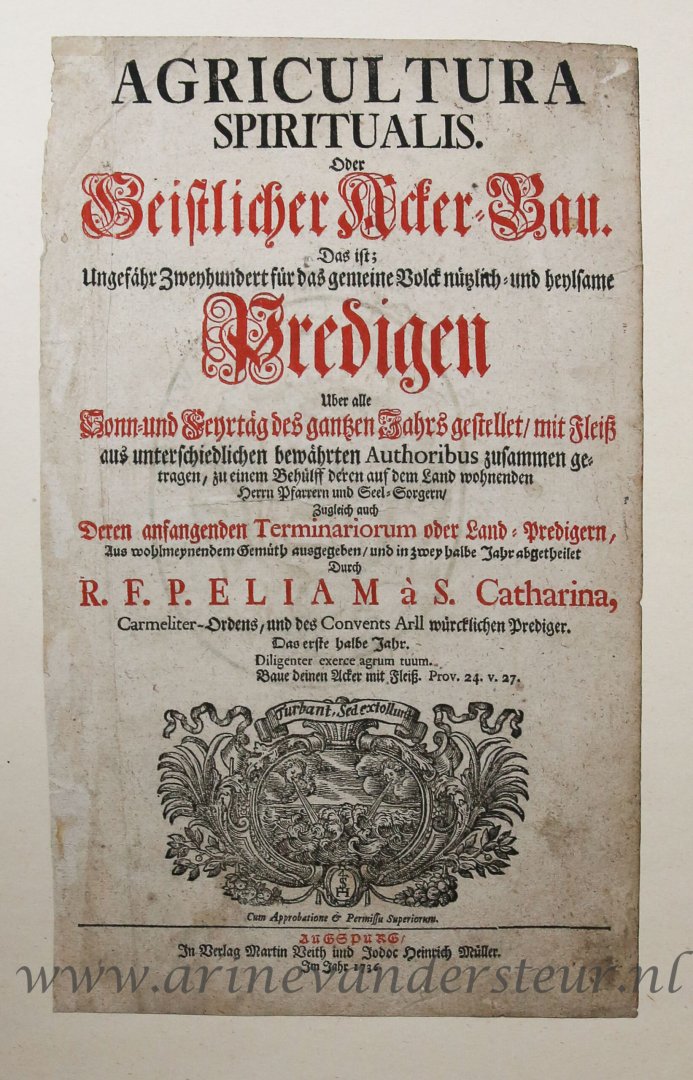 AGRICULTURA
SPIRITUALIS.
Oder
Geistlicher Acker-Bau.
Das ist;
Ungefähr Zweyhundert für das gemeine Volck nützlich-und heylsame
Predigen
Uber alle
Sonn-und Feyrtäg des gantzen Jahrs gestellet/ mit Fleiß
aus unterschiedlichen bewährten Authoribus zusammen ge-
tragen, zu einem Behülff deren auf dem Land wohnenden
Herrn Pfarrern und Seel-Sorgern/
Zugleich auch
Deren anfangenden Terminariorum oder Land-Predigern,
Aus wohlmeynendem Gemüth ausgegeben/ und in zwey halbe Jahr abgetheilet
Durch
R. F. P. ELIAM à S. Catharina,
Carmeliter-Ordens, und des Convents Arll würcklichen Prediger.
Das erste halbe Jahr.
Diligenter exerce agrum tuum.
Baue deinen Acker mit Fleiß. Prov. 24. v. 27.
Turbant, Sed extollunt
Cum Approbatione & Permissu Superiorum.
AUGSPURG/
In Verlag Martin Veith und Jodoc Heinrich Müller.
Im Jahr 1736
www.arinevandersteur.nl